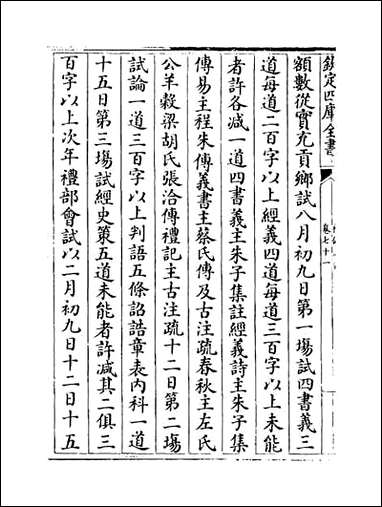 欽定四庫全書
卷七十一
額數從實充貢鄉試八月初九日第一場試四書義三
道每道二百字以上經義四道每道三百字以上未能
者許各减一道四書義主朱子集註經義詩主朱子集
傳易主程朱傳義書主蔡氏傳及古注疏春秋主左氏
公羊穀梁胡氏張洽傳禮記主古注疏十二日第二塲
試論一道三百字以上判語五條詔誥章表内科一道
十五日第三塲試經史策五道未能者許减其二俱三
百字以上次年禮部會試以二月初九日十二日十五